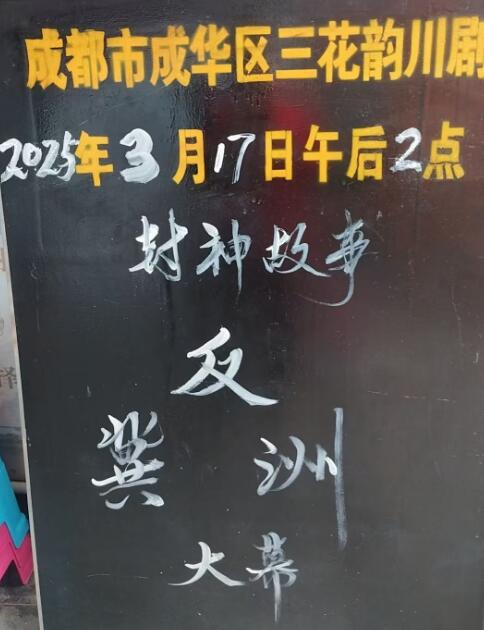 成都市成华区三花韵川剧
2025年3月17日午后2点
封神故事
反
冀洲
大幕